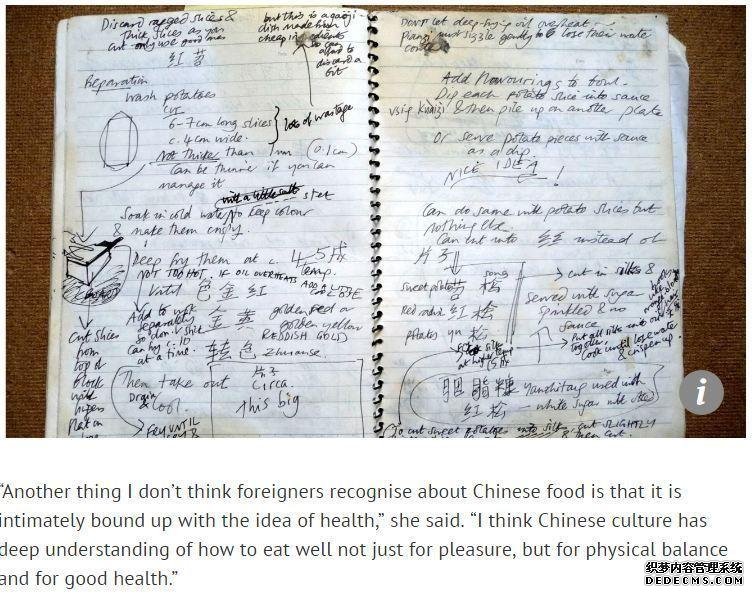 Discard ragged slices &
thick slices as you
cut - only use good ones
红苕
but this is a
dish made with
cheap
so can
afford to
discard a
bit
Preparation
Wash potatoes
Cut
6-7cm long slices
c. 4cm wide
lots of wastage
Not Thicker than 1mm (0.1cm)
Can be thinner if you can
manage it
Soak in cold water to keep colour
& make them crispy.
Deep fry them at c. 4-5成
NOT TOO HOT, IF OIL OVERHEATS ADD
temp.
Until 色金红
Add to wok
separately
so don't stick
Can fry c. 10
at a time.
金黄
golden red or
golden yellow
REDDISH GOLD
转色 zhuanse.
Cut slices
from
top of
block
with
Then take out
Drain
& cool.
片子
circa.
this big
Fry UNTIL
Don't let deep-frying oil overheat -
must sizzle gently to lose their water
Add flavourings to bowl.
Dip each potato slice into sauce
using kuaizi & then pile up on another plate
Or serve potato pieces with sauce
as a dip
NICE IDEA!
Can do same with potato slices but
nothing else.
Can cut into 丝 instead of
片子
song
sweet potato 苕松
Red radish 红松
Potatoes yu 松
cut in silks &
Served with sugar
sprinkled & no
sauce
Put all silks into
together,
Cook until lose water
& crispen up.
yanzhitang used with
红松 - white sugar with
cut sweet potatoes into silks cut SLIGHTLY
& then cut.
i
“Another thing I don’t think foreigners recognise about Chinese food is that it is
intimately bound up with the idea of health,” she said. “I think Chinese culture has
deep understanding of how to eat well not just for pleasure, but for physical balance
and for good health.”
织梦内容管理系统
DEDECMS.COM